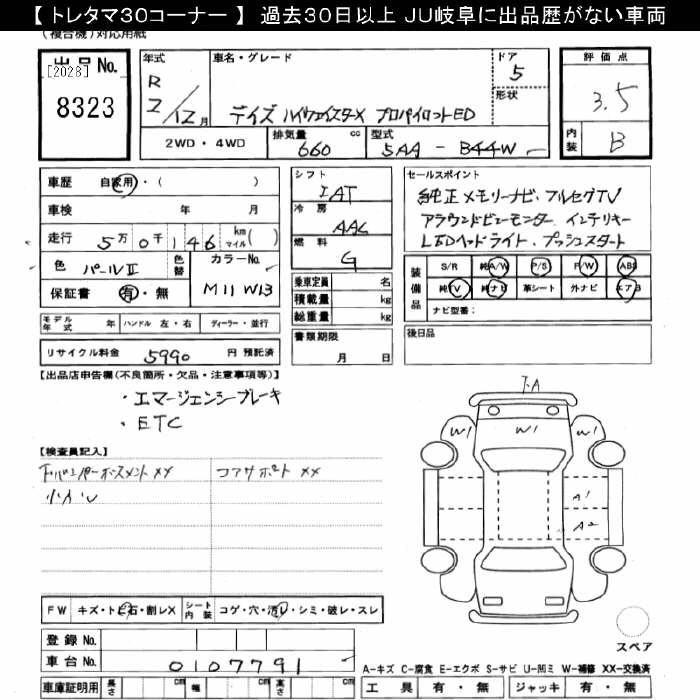 【 トレタマ30コーナー 】 過去30日以上 JU岐阜に出品歴がない車両
(複合機)対応用紙
出品No.
[2028]
8323
年式
R
2/12月
車名・グレード
デイズ ハイウェイスターX プロパイロットED
ドア
5
形状
評価点
3.5
内装
B
2WD・4WD
排気量
cc
660
型式
5AA - B44W
車歴
自家用・( )
車検
年 月
走行
5万0千146 km マイル( )
色
パールⅡ
色替
カラーNo.
M11 W13
保証書
有・無
シフト
IAT
冷房
AAC
燃料
G
乗車定員 名
積載量 kg
総重量 kg
セールスポイント
純正メモリーナビ・フルセグTV
アラウンドビューモニター インテリキー
LEDヘッドライト・プッシュスタート
装備品
S/R 純A/W P/S P/W ABS
純TV 純ナビ 革シート 外ナビ エアB
ナビ型番:
モデル年式 年
ハンドル 左・右
ディーラー・並行
書類期限
月 日
後日品
リサイクル料金 5990 円 預託済
【出品店申告欄(不良箇所・欠品・注意事項等)】
・エマージェンシーブレーキ
・ETC
【検査員記入】
コアサポート XX
小カレ
F.A
W1
W1
A1
A2
FW キズ・トビ石・割レX
シート内装 コゲ・穴・汚レ・シミ・破レ・スレ
登録No.
車台No. 0107791
車庫証明用 長さ cm 幅 cm 高さ cm
スペア
A-キズ C-腐食 E-エクボ S-サビ U-凹ミ W-補修 XX-交換済
工具 有・無 ジャッキ 有・無